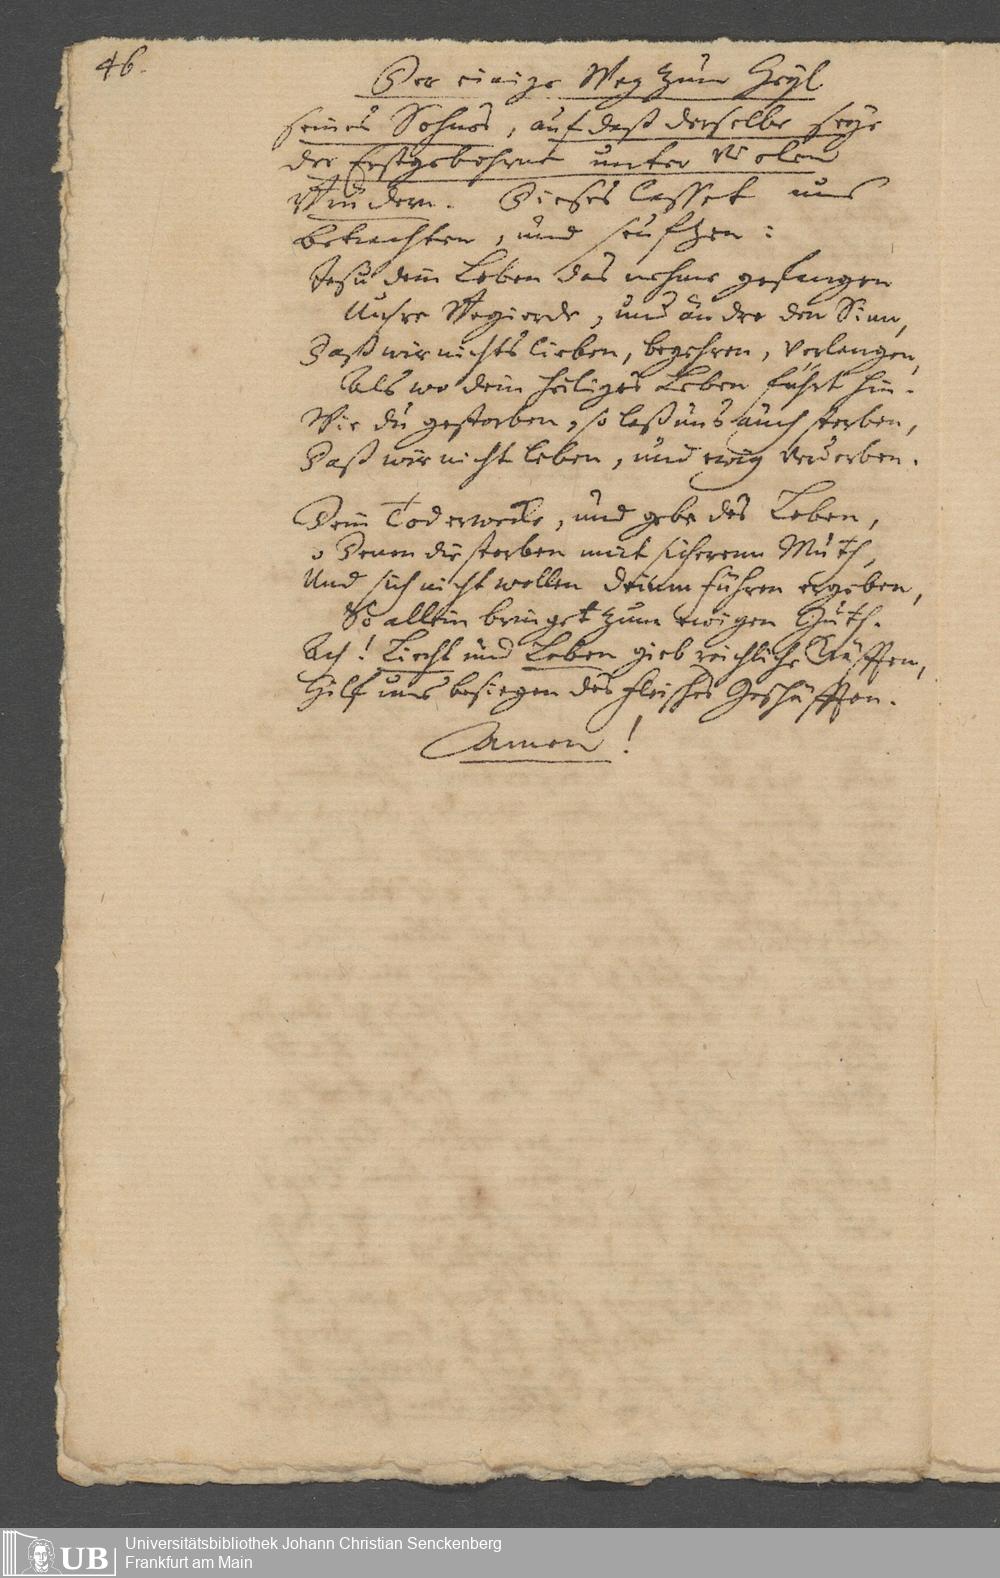 46.
Der einige Weg zum Heyl
seines Sohnes, auf daß derselbe seye
der Erstgebohrne unter vielen
Brüdern. Dieses lasset uns
betrachten, und seufzen:
Jesu dein Leben das nehme gefangen
Unsre Begierde, und ändre den Sinn,
Daß wir nichts lieben, begehren, verlangen,
Als wo dein heiliges Leben führt hin.
Wie du gestorben, so laß uns auch sterben,
Daß wir nicht leben, und ewig verderben.
Dein Tod erwecke, und gebe das Leben,
Denen die sterben mit sicherem Muth,
Und sich nicht wollen deinem führen ergeben,
So allein bringet zum ewigen Guth.
Ach! Liecht und Leben gieb reichliche Kräfften,
Hilf uns besiegen des fleisches Geschäfften.
Amen!
UB
Universitätsbibliothek Johann Christian Senckenberg
Frankfurt am Main